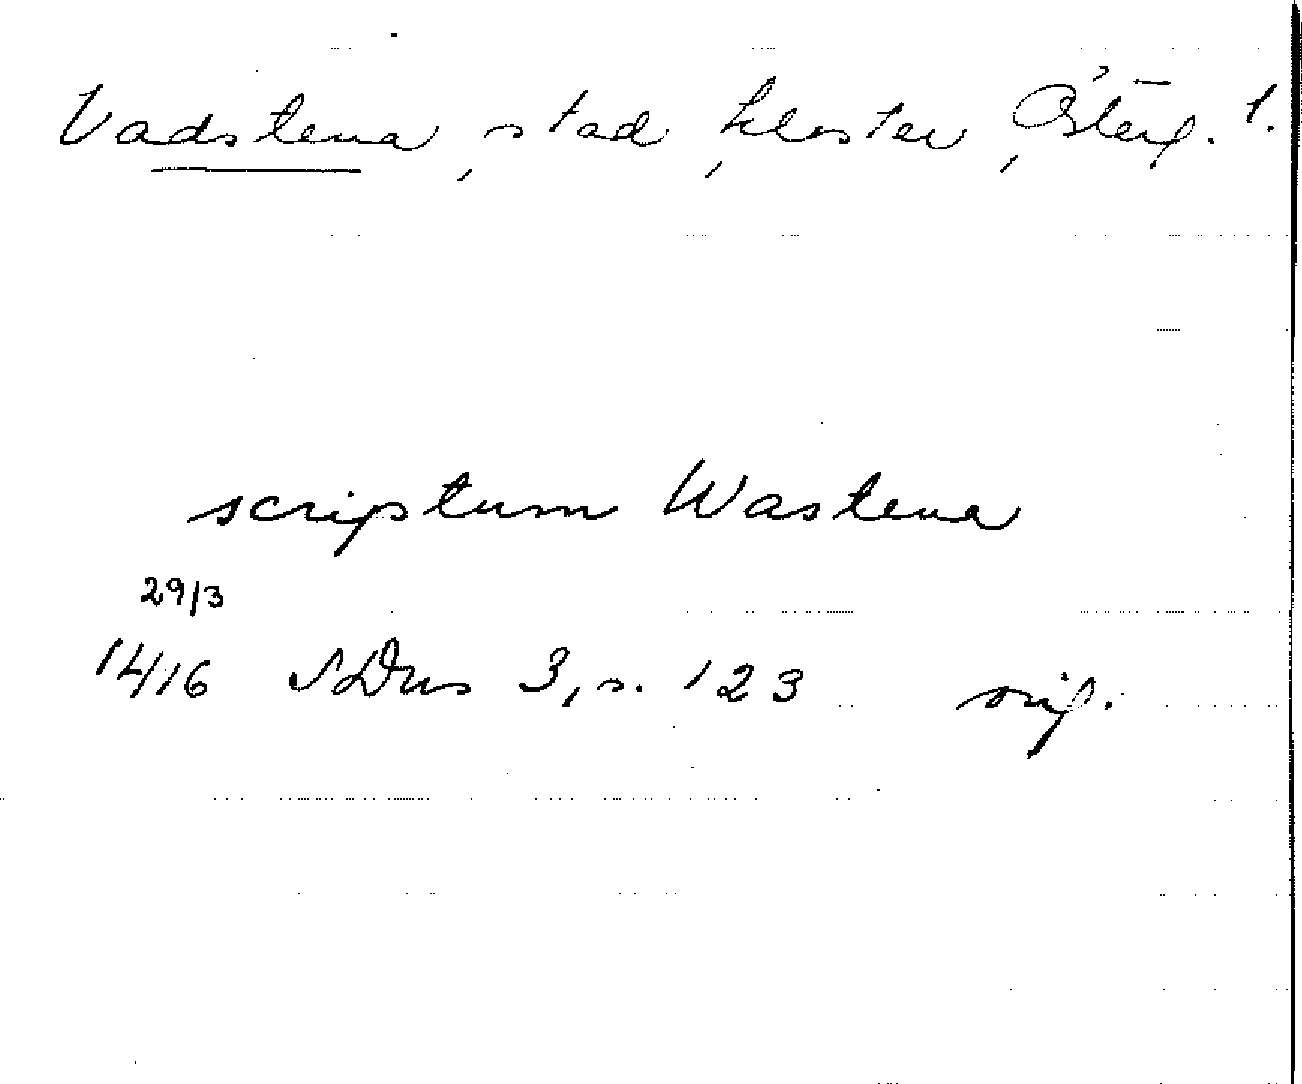 Vadstena, stad, kloster, Österg. l.
scriptum Wastena
29/3
1416 SDns 3, s. 123 orig.